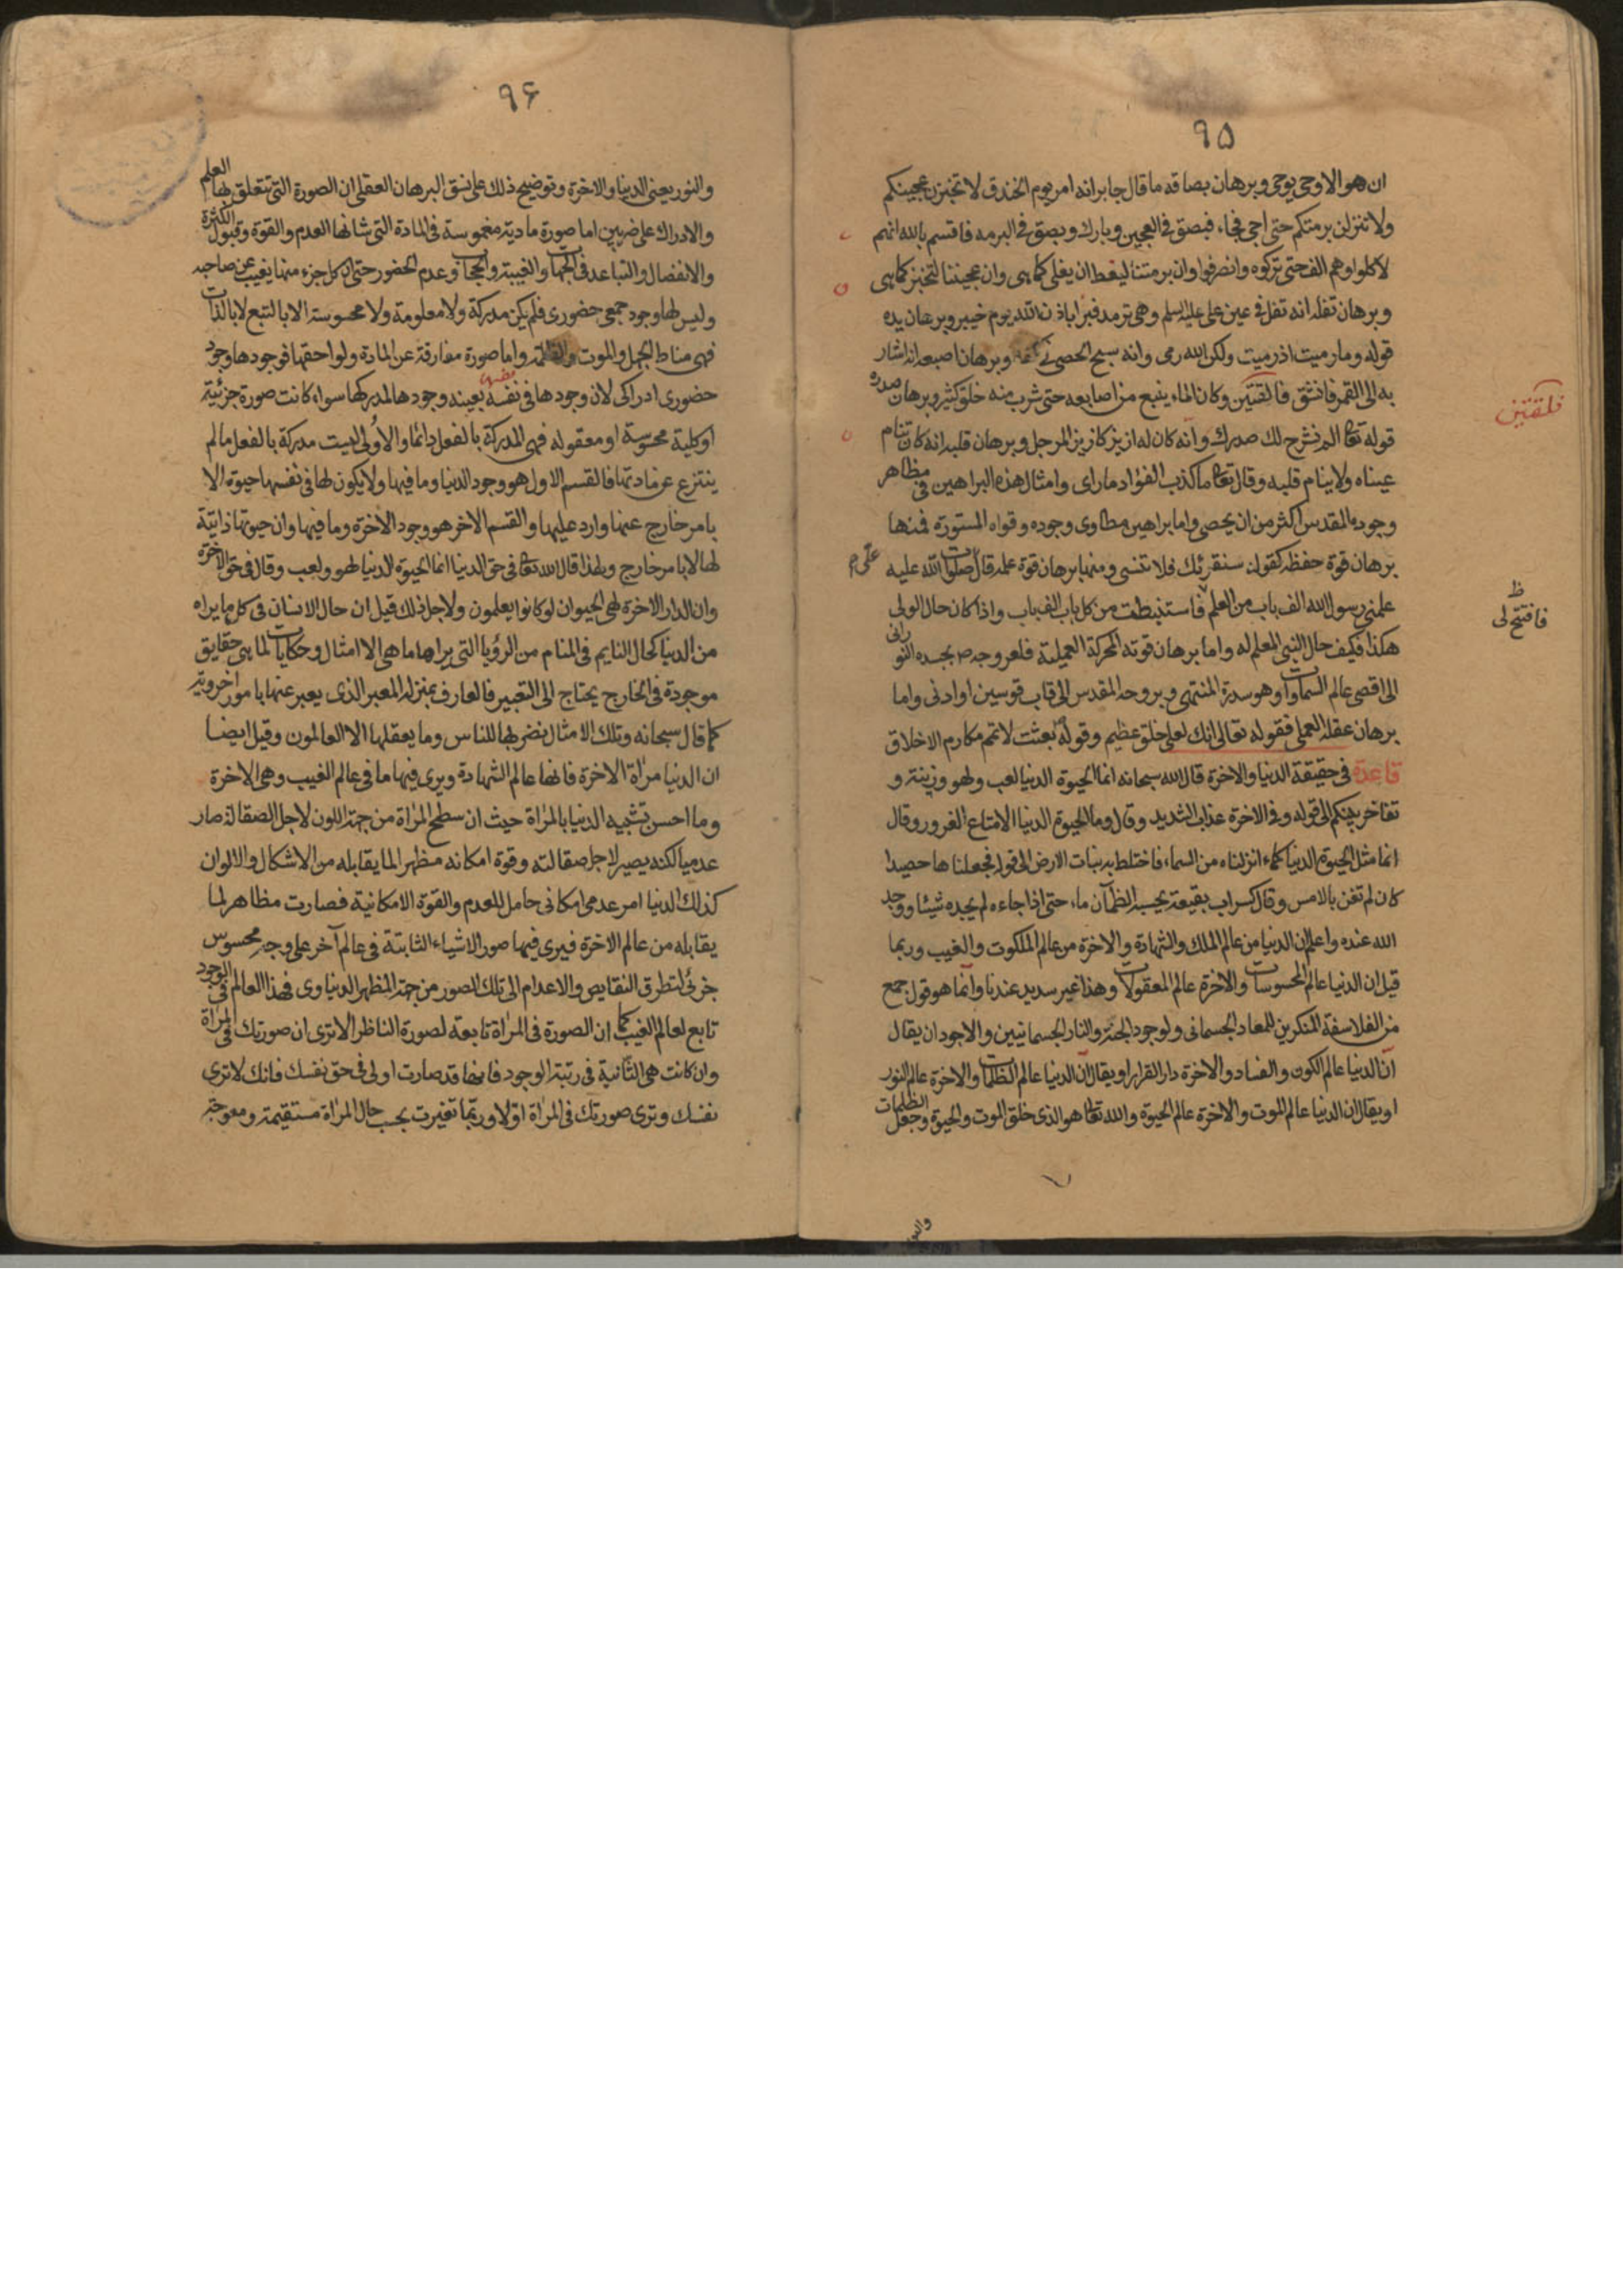 ٩٥
ان هو الا وحی یوحی وبرهان بصاقه ما قال جابر انه امر یوم الخندق لا تخبزن عجینکم
ولا تنزلن برمتکم حتی اجی فجاء فبصق فی العجین وبارك وبصق فی البرمه فاقسم بالله انهم
لاکلوا وهم الف حتی ترکوه وانصرفوا وان برمتنا لیغط ان یغلی کما هی وان عجیننا لتخبز کما هی
وبرهان تفله انه تفل فی عین علی علیه السلم وهی ترمد فبرأ باذن الله یوم خیبر وبرهان یده
قوله وما رمیت اذ رمیت ولکن الله رمی وانه سبح الحصی فی کفه وبرهان اصبعه انه اشار
به الی القمر فانشق فالقتین وکان الماء ینبع من اصابعه حتی شرب منه خلق کثیر وبرهان صدره
فلقتین
قوله تعا الم نشرح لك صدرك وانه کان له ازیز کازیز المرجل وبرهان قلبه انه کان تنام
عیناه ولا ینام قلبه وقال تعا ما کذب الفؤاد ما رای وامثال هذه البراهین فی مظاهر
وجوده المقدس اکثر من ان یحصی واما براهین مطاوی وجوده وقواه المستورة فمنها
برهان قوة حفظه کقوله سنقرئك فلا تنسی ومنها برهان قوة علمه قال صلوات الله علیه
علمنی رسول الله الف باب من العلم فاستنبطت من کل باب الف باب واذا کان حال الولی
ظ
فافتتح لی
هکذا فکیف حال النبی المعلم له واما برهان قوته المحرکة العملیة فلعروجه ص بجسده النورانی
الی اقصی عالم السماوات وهو سدرة المنتهی وبروحه المقدس الی قاب قوسین او ادنی واما
برهان عقله العملی فقوله تعالی انك لعلی خلق عظیم وقوله بعثت لاتمم مکارم الاخلاق
قاعدة فی حقیقة الدنیا والاخرة قال الله سبحانه انما الحیوة الدنیا لعب ولهو وزینة و
تفاخر بینکم الی قوله وفی الاخرة عذاب الشدید وقال وما الحیوة الدنیا الا متاع الغرور وقال
انما مثل الحیوة الدنیا کماء انزلناه من السماء فاختلط به نبات الارض الی قوله فجعلناها حصیدا
کان لم تغن بالامس وقال کسراب بقیعة یحسبه الظمآن ماء حتی اذا جاءه لم یجده شیئا ووجد
الله عنده واعلم ان الدنیا من عالم الملك والشهادة والاخرة من عالم الملکوت والغیب وربما
قیل ان الدنیا عالم المحسوسات والاخرة عالم المعقولات وهذا غیر سدید عندنا وانما هو قول جمع
من الفلاسفة المنکرین للمعاد الجسمانی ولوجود الجنة والنار الجسمانیین والاجود ان یقال
ان الدنیا عالم الکون والفساد والاخرة دار القرار او یقال ان الدنیا عالم الظلمات والاخرة عالم النور
او یقال ان الدنیا عالم الموت والاخرة عالم الحیوة والله تعا هو الذی خلق الموت والحیوة وجعل الظلمات
٩۶
والنور یعنی الدنیا والاخرة وتوضیح ذلك علی نسق البرهان العقلی ان الصورة التی تتعلق بها العلم
والادراك علی ضربین اما صورة مادیة مغموسة فی المادة التی شانها العدم والقوة وقبول الکثرة
والانفصال والتباعد فی الجهات والغیبة والحجاب وعدم الحضور حتی ان کل جزء منها یغیب عن صاحبه
ولیس لها وجود جمعی حضوری فلم یکن مدرکة ولا معلومة ولا محسوسة الا بالتبع لا بالذات
فهی مناط الجهل والموت والظلمة واما صورة مفارقة عن المادة ولواحقها فوجودها وجود
حضوری ادراکی لان وجودها فی نفسه بعینه وجودها لمدرکها سواء کانت صورة جزئیة
نفسها
او کلیة محسوسة او معقوله فهی المدرکة بالفعل دائما والاولی لیست مدرکة بالفعل ما لم
ینتزع عن مادتها فالقسم الاول هو وجود الدنیا وما فیها ولا یکون لها فی نفسها حیوة الا
بامر خارج عنها وارد علیها والقسم الاخر هو وجود الاخرة وما فیها وان حیوتها ذاتیة
لها لا بامر خارج ولهذا قال الله تعا فی حق الدنیا انما الحیوة الدنیا لهو ولعب وقال فی حق الاخرة
وان الدار الاخرة لهی الحیوان لو کانوا یعلمون ولاجل ذلك قیل ان حال الانسان فی کل ما یراه
من الدنیا کحال النایم فی المنام من الرؤیا التی یراها ما هی الا امثال وحکایات لما هی حقایق
موجودة فی الخارج یحتاج الی التعبیر فالعارف بمنزلة المعبر الذی یعبر عنها بامور اخرویة
کما قال سبحانه وتلك الامثال نضربها للناس وما یعقلها الا العالمون وقیل ایضا
ان الدنیا مرآة الاخرة فانها عالم الشهادة ویری فیها ما فی عالم الغیب وهی الاخرة
وما احسن تشبیه الدنیا بالمرآة حیث ان سطح المرآة من جهة اللون لاجل الصقالة صار
عدمیا لکنه یصیر لاجل صقالته وقوة امکانه مظهرا لما یقابله من الاشکال والالوان
کذلك الدنیا امر عدمی امکانی حامل للعدم والقوة الامکانیة فصارت مظاهر لما
یقابله من عالم الاخرة فیری فیها صور الاشیاء الثابتة فی عالم آخر علی وجه محسوس
جزئی لتطرق النقایص والاعدام الی تلك الصور من جهة المظهر الدنیاوی فهذا العالم فی الوجود
تابع لعالم الغیب کما ان الصورة فی المرآة تابعة لصورة الناظر الا تری ان صورتك فی المرآة
وان کانت هی الثانیة فی رتبة الوجود فانها قد صارت اولی فی حق نفسك فانك لا تری
نفسك وتری صورتك فی المرآة اولا وربما تغیرت بحسب حال المرآة مستقیمة ومعوجة